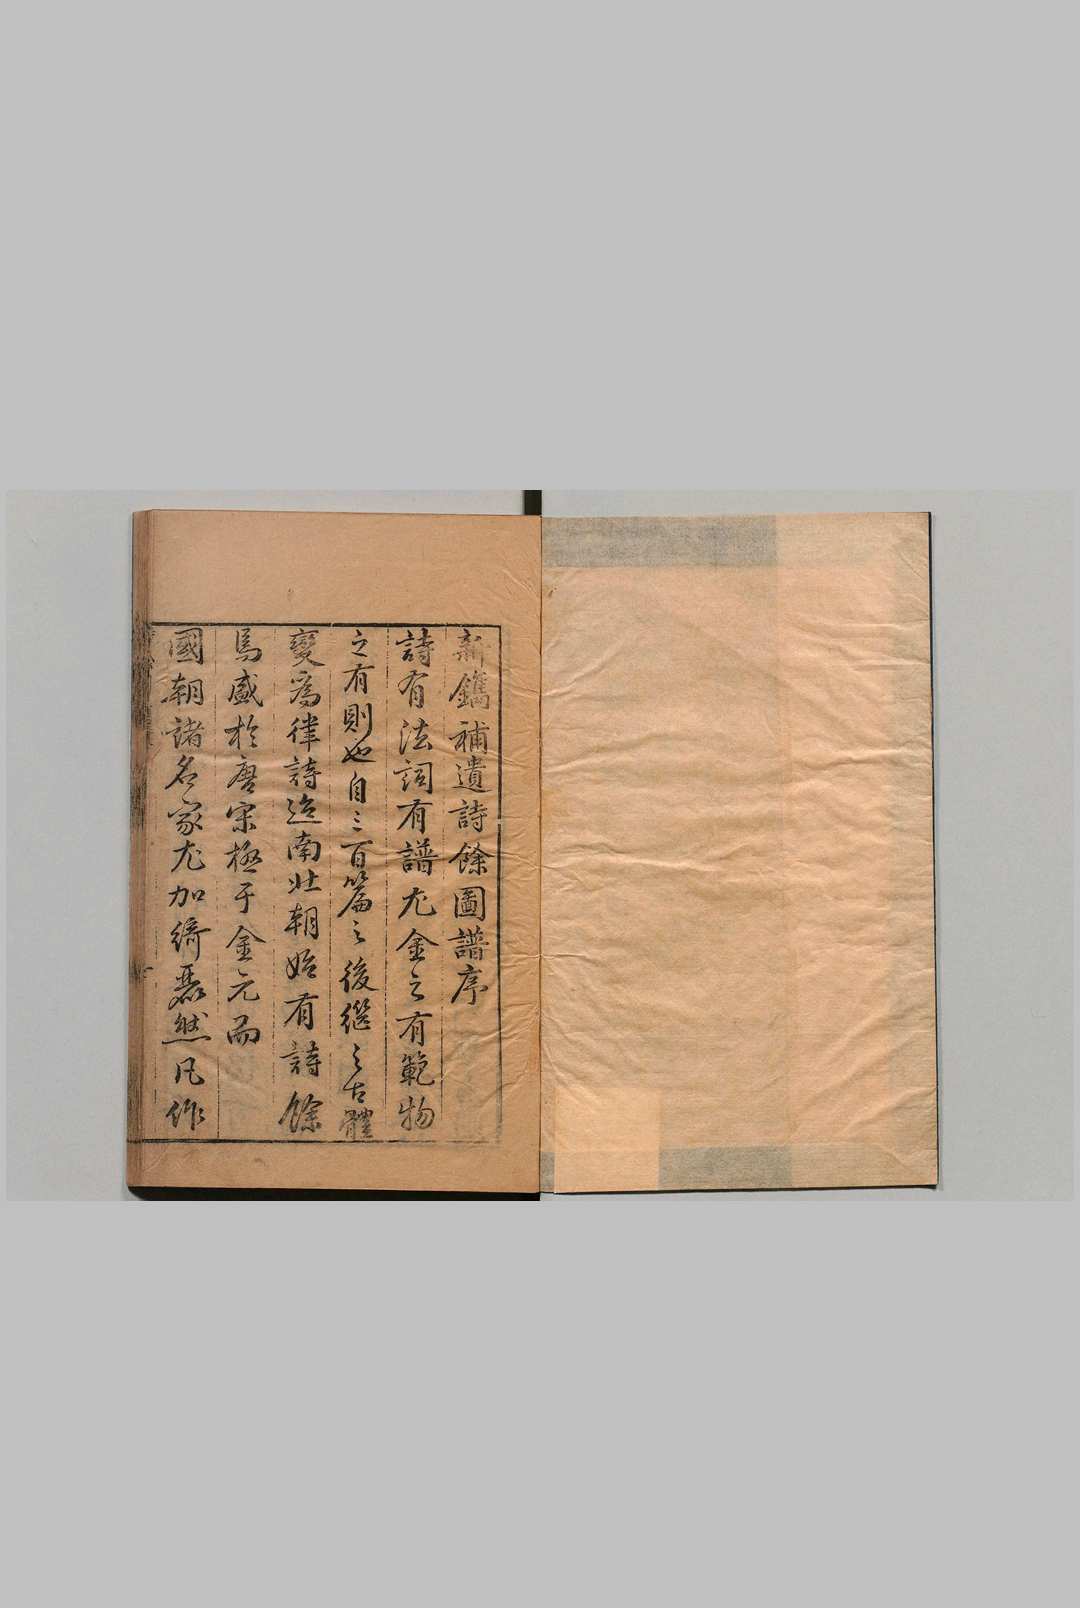 新鐫補遺詩餘圖譜序
詩有法詞有譜尤金之有範物
之有則也自三百篇之後繼之古體
變爲律詩迨南北朝始有詩餘
焉盛於唐宋極于金元而
國朝諸名家尤加綺麗然凡作